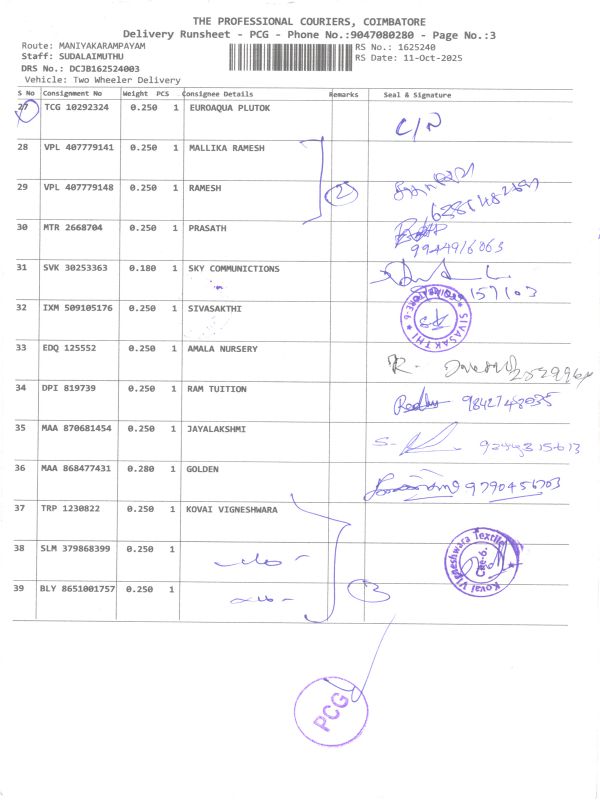 THE PROFESSIONAL COURIERS, COIMBATORE
Delivery Runsheet - PCG - Phone No.:9047080280 - Page No.:3
Route: MANIYAKARAMPAYAM RS No.: 1625240
Staff: SUDALAIMUTHU RS Date: 11-Oct-2025
DRS No.: DCJB162524003
Vehicle: Two Wheeler Delivery
S No Consignment No Weight PCS Consignee Details Remarks Seal & Signature
27 TCG 10292324 0.250 1 EUROAQUA PLUTOK C/N
28 VPL 407779141 0.250 1 MALLIKA RAMESH
29 VPL 407779148 0.250 1 RAMESH 2
30 MTR 2668704 0.250 1 PRASATH
31 SVK 30253363 0.180 1 SKY COMMUNICTIONS
32 IXM 509105176 0.250 1 SIVASAKTHI SIVASAKTHI
33 EDQ 125552 0.250 1 AMALA NURSERY R.
34 DPI 819739 0.250 1 RAM TUITION
35 MAA 870681454 0.250 1 JAYALAKSHMI
36 MAA 868477431 0.280 1 GOLDEN 9790456703
37 TRP 1230822 0.250 1 KOVAI VIGNESHWARA
38 SLM 379868399 0.250 1 Kovai Vigneshwara Textile Cbe-6.
39 BLY 8651001757 0.250 1 3
PCG